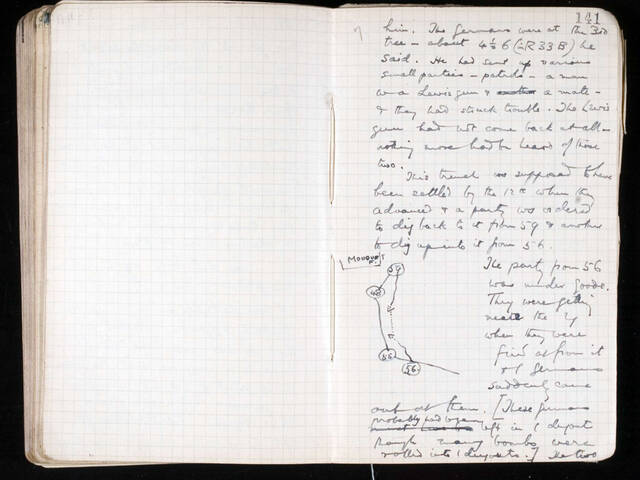 141
him. The Germans were at the 3rd
tree – about 4½ 6 (in R 33 B) he
said. He had sent up various
small parties – patrols – a man
w a Lewis gun & a mate –
& they had struck trouble. The Lewis
gun had not come back at all –
nothing more had bn heard of those
two.
This trench was supposed to have
been settled by the 12th when they
advanced & a party was ordered
to dig back to it from 59 & another
to dig up into it from 56.
MOUQUET
F.
59
55
56
The party from 56
was under Goode.
They were getting
near the
when they were
fired at from it
& / Germans
suddenly came
out at them. [These Germans
probably had been
left in / dugout
though many bombs were
rolled into / dugouts.] The two